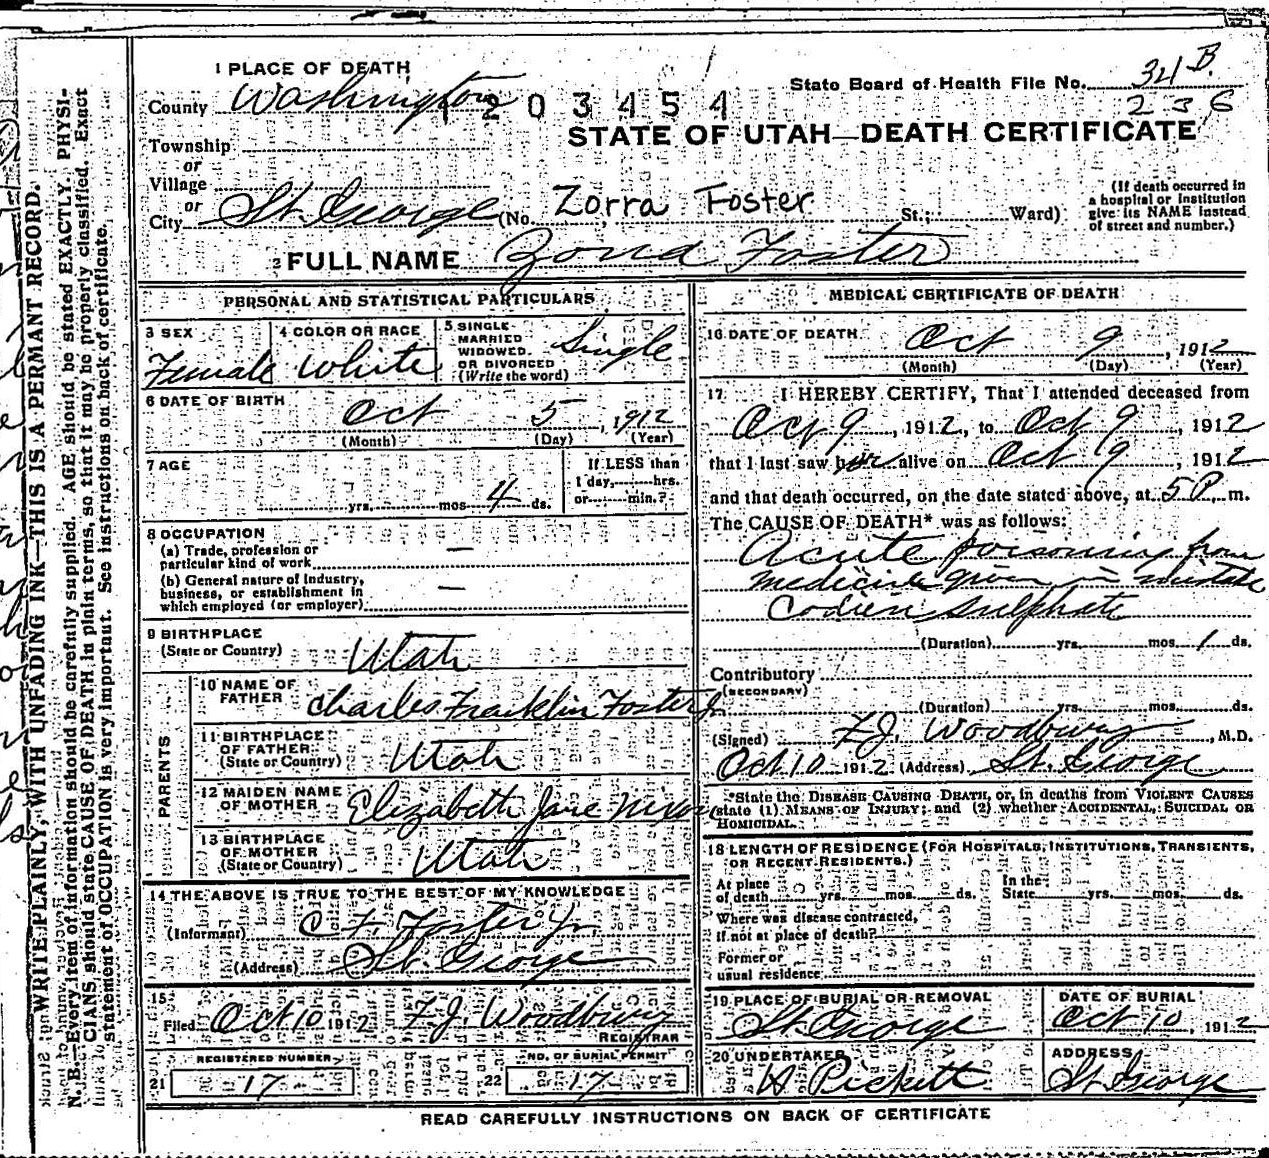 1 PLACE OF DEATH
State Board of Health File No. 34 B.
236
County Washington
1203454
STATE OF UTAH—DEATH CERTIFICATE
Township
or
Village
or
City St. George (No. Zorra Foster St.; Ward)
(If death occurred in a hospital or institution give its NAME instead of street and number.)
2 FULL NAME Foster
PERSONAL AND STATISTICAL PARTICULARS
3 SEX Female
4 COLOR OR RACE White
5 SINGLE MARRIED WIDOWED. OR DIVORCED (Write the word) Single
6 DATE OF BIRTH Oct 5, 1912
(Month) (Day) (Year)
7 AGE
yrs. mos. 4 ds.
If LESS than 1 day, hrs. or min.?
8 OCCUPATION
(a) Trade, profession or particular kind of work —
(b) General nature of industry, business, or establishment in which employed (or employer) —
9 BIRTHPLACE
(State or Country) Utah
PARENTS
10 NAME OF FATHER Charles Franklin Foster Jr
11 BIRTHPLACE OF FATHER (State or Country) Utah
12 MAIDEN NAME OF MOTHER Elizabeth Jane Nixon
13 BIRTHPLACE OF MOTHER (State or Country) Utah
14 THE ABOVE IS TRUE TO THE BEST OF MY KNOWLEDGE
(Informant) C F. Foster Jr.
(Address) St. George
15
Filed Oct 10 1912 F.J. Woodbury
REGISTRAR
REGISTERED NUMBER
21 17
NO. OF BURIAL PERMIT
22 17
MEDICAL CERTIFICATE OF DEATH
16 DATE OF DEATH Oct 9, 1912
(Month) (Day) (Year)
17 I HEREBY CERTIFY, That I attended deceased from
Oct 9, 1912, to Oct 9, 1912
that I last saw her alive on Oct 9, 1912
and that death occurred, on the date stated above, at 5 P. m.
The CAUSE OF DEATH* was as follows:
Acute poisoning from
medicine given in mistake
Codien Sulphate
(Duration) yrs. mos. 1 ds.
Contributory
(SECONDARY)
(Duration) yrs. mos. ds.
(Signed) F.J. Woodbury, M.D.
Oct 10 1912 (Address) St. George
*State the DISEASE CAUSING DEATH, or, in deaths from VIOLENT CAUSES state (1) MEANS OF INJURY; and (2) whether ACCIDENTAL, SUICIDAL OR HOMICIDAL.
18 LENGTH OF RESIDENCE (FOR HOSPITALS, INSTITUTIONS, TRANSIENTS, OR RECENT RESIDENTS.)
At place of death yrs. mos. ds. In the State yrs. mos. ds.
Where was disease contracted,
if not at place of death?
Former or
usual residence
19 PLACE OF BURIAL OR REMOVAL St. George
DATE OF BURIAL Oct 10, 1912
20 UNDERTAKER H Pickett
ADDRESS St George
READ CAREFULLY INSTRUCTIONS ON BACK OF CERTIFICATE
WRITE PLAINLY, WITH UNFADING INK—THIS IS A PERMANT RECORD.
N. B.—Every item of information should be carefully supplied. AGE should be stated EXACTLY. PHYSI-
CIANS should state CAUSE OF DEATH in plain terms, so that it may be properly classified. Exact
statement of OCCUPATION is very important. See instructions on back of certificate.